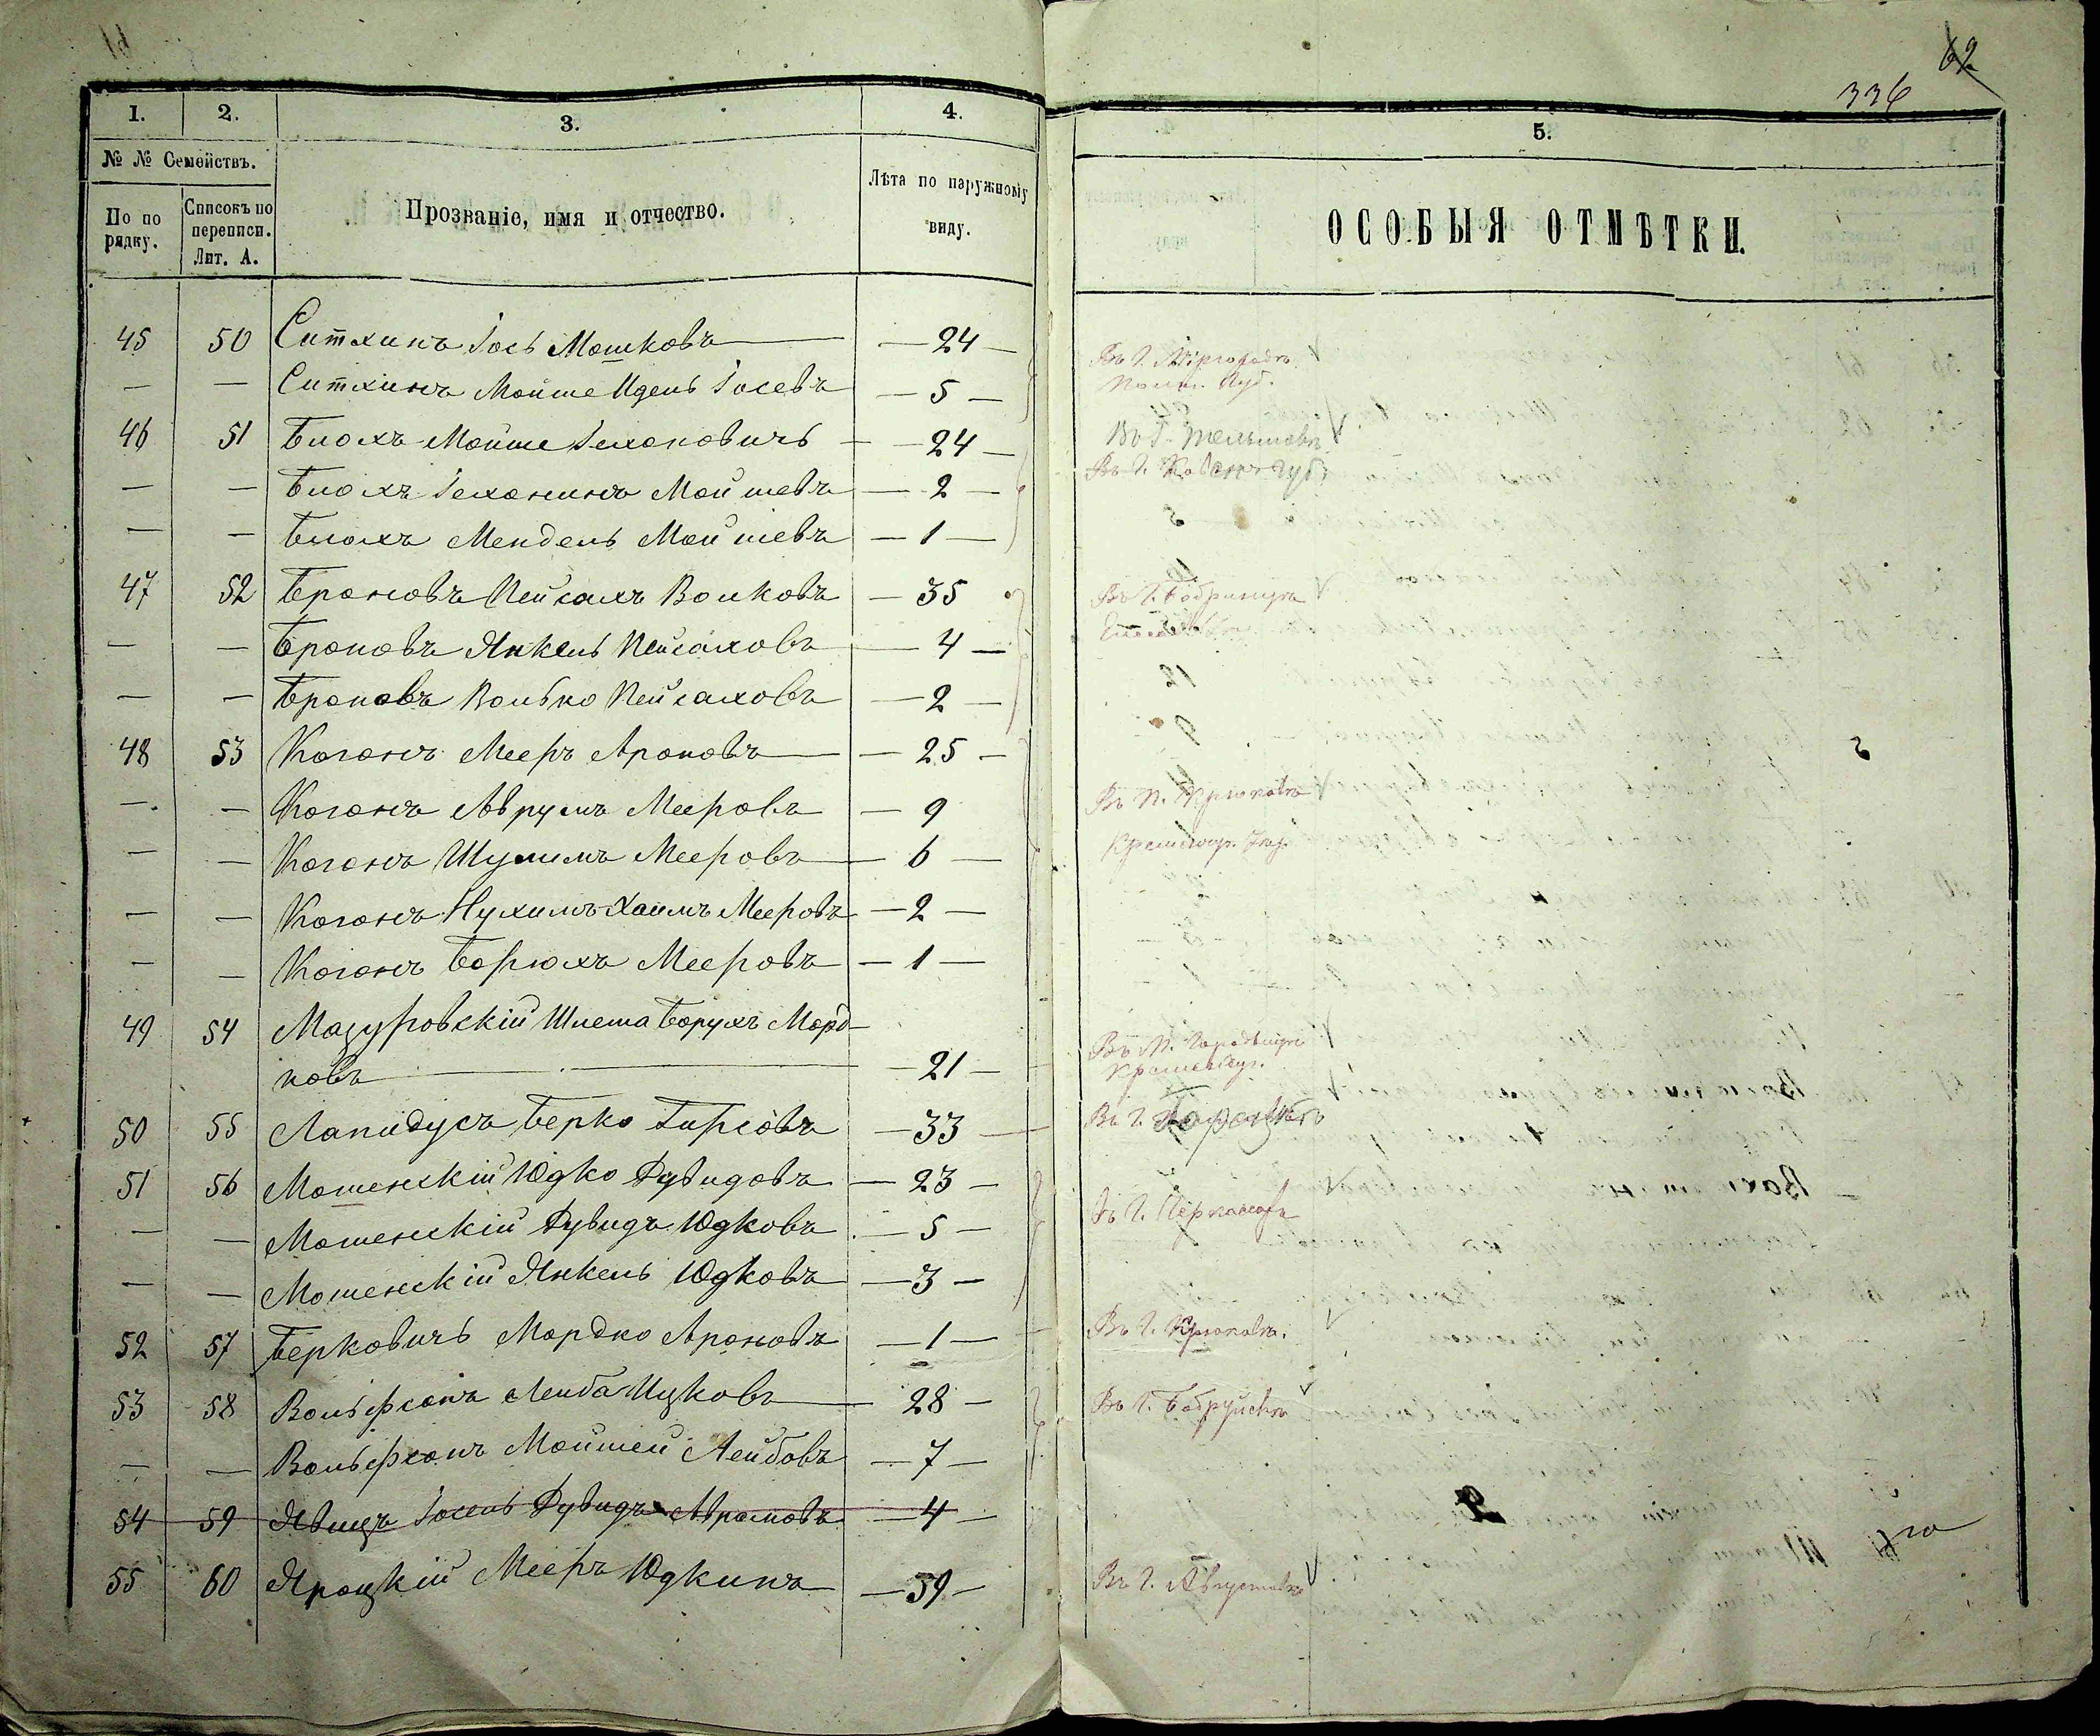 62
336
1.
2.
3.
4.
5.
№ № Семействъ.
По по рядку.
Списокъ по переписи. Лит. А.
Прозваніе, имя и отчество.
Лѣта по наружному виду.
ОСОБЫЯ ОТМѢТКИ.
45 50 Ситхинъ Іось Мошковъ — 24 —
— — Ситхинъ Мойше Идель Іосевъ — 5 —
46 51 Блохъ Мойше Іехоновичъ — 24 —
— — Блохъ Іехонинъ Мойшевъ — 2 —
— — Блохъ Мендель Мойшевъ — 1 —
47 52 Броновъ Пейсахъ Волковъ — 35
— — Броновъ Янкель Пейсаховъ — 4 —
— — Броновъ Волько Пейсаховъ — 2 —
48 53 Коганъ Мееръ Ароновъ — 25 —
— — Коганъ Аврумъ Мееровъ — 9
— — Коганъ Шулимъ Мееровъ — 6 —
— — Коганъ Нухимъ-Хаимъ Мееровъ — 2 —
— — Коганъ Борюхъ Мееровъ — 1 —
49 54 Мазуровскій Шлема Борухъ Морд-
ковъ — 21 —
50 55 Лапидусъ Берко Гирсовъ — 33 —
51 56 Мошенскій Юдко Дувидовъ — 23 —
— — Мошенскій Дувидъ Юдковъ — 5 —
— — Мошенскій Янкель Юдковъ — 3 —
52 57 Берковичъ Мордко Ароновъ — 1 —
53 58 Вольфсонъ Лейба Ицковъ — 28 —
— — Вольфсонъ Мойшей Лейбовъ — 7 —
54 59 Явицъ Іосель Дувидъ Абрамовъ — 4 —
55 60 Яроцкій Мееръ Юдкинъ — 59 —
Въ г. Миргородъ
Полт. Губ.
Въ г. Тельшовъ
Въ г. Ковен. губ.
Въ г. Бобринцъ
Въ п. Крюковъ
Кременчуг.
Въ м. Городище
Кременчуг.
Въ г.
Въ г. Черкассы
Въ г. Крюковъ.
Въ г. Бобруйскъ
Въ г. Августовъ